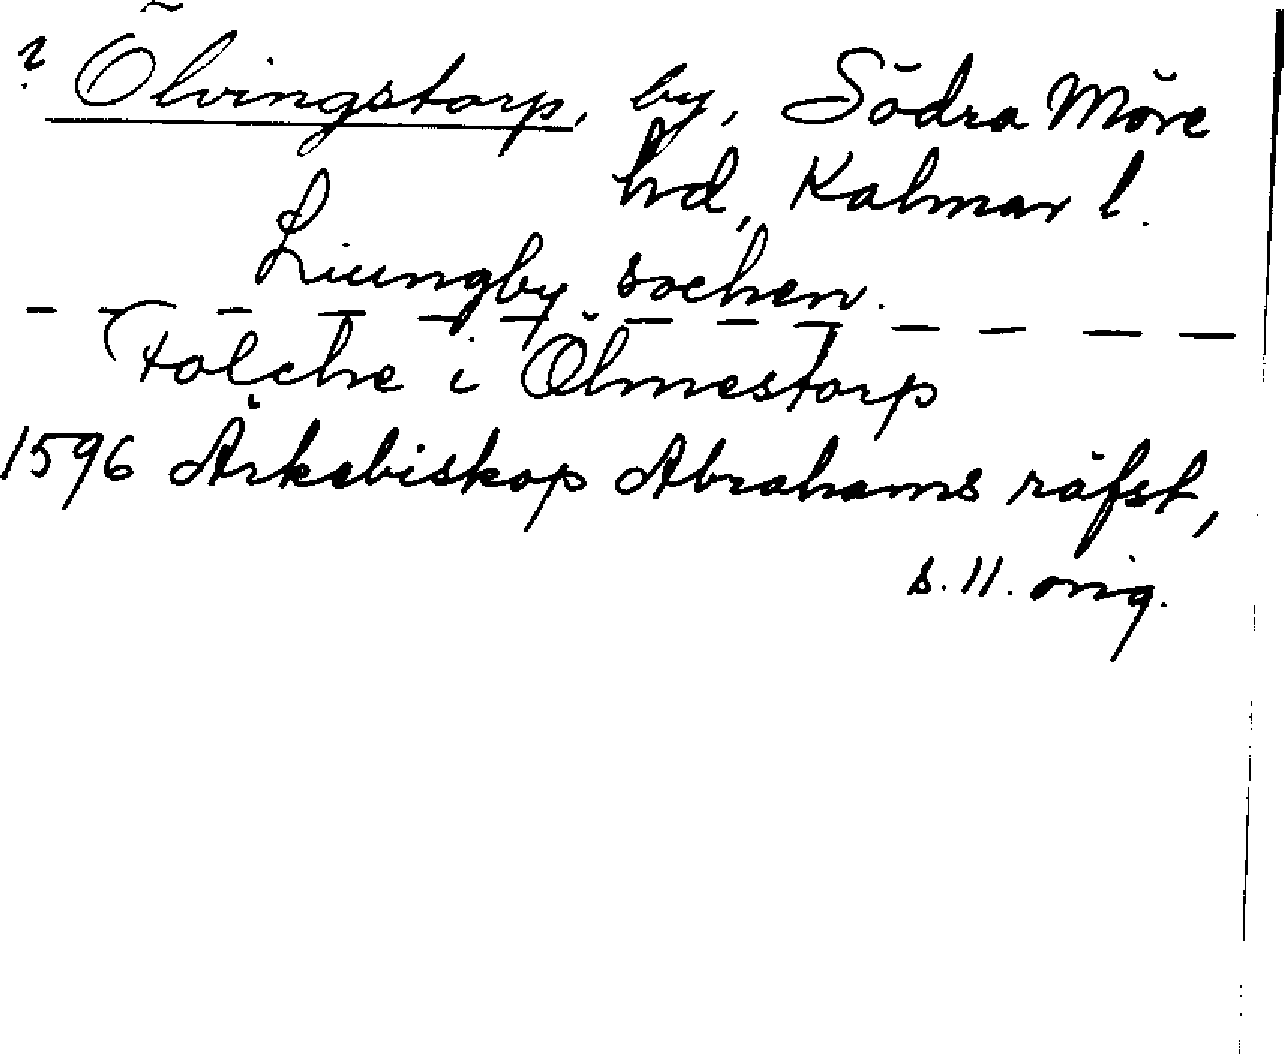 ? Ölvingstorp, by, Södra Möre
hd, Kalmar l.
Liungby sochen.
Folche i Ölmestorp
1596 Ärkebiskop Abrahams räfst,
s. 11. orig.